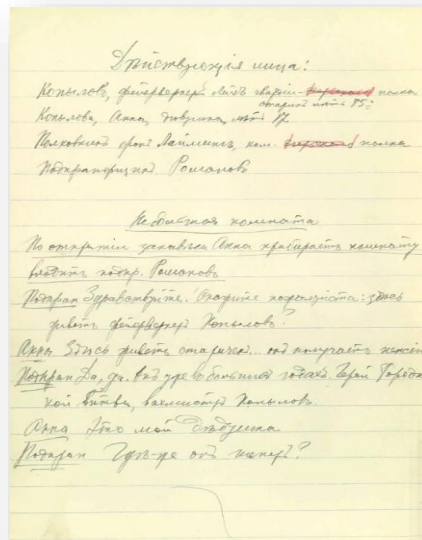 Дѣйствующія лица:
Копыловъ, фейерверкеръ Лейбъ гвардіи полка
старикъ лѣтъ 85:
Копылова, Анна, дѣвушка, лѣтъ 17
Полковникъ фонъ Лаймингъ, ком. полка
Подпрапорщикъ Романовъ
Небольшая комната
По открытіи занавѣса Анна прибираетъ комнату
входитъ подпр. Романовъ
Подпрап Здравствуйте. Скажите пожалуйста: здѣсь
живетъ фейерверкеръ Копыловъ?
Анна Здѣсь живетъ старичекъ... онъ получаетъ
Подпрап Да, да. Онъ уже въ большихъ годахъ. Герой
битвы, вахмистръ Копыловъ.
Анна Это мой дѣдушка
Подпрап Гдѣ-же онъ теперь?